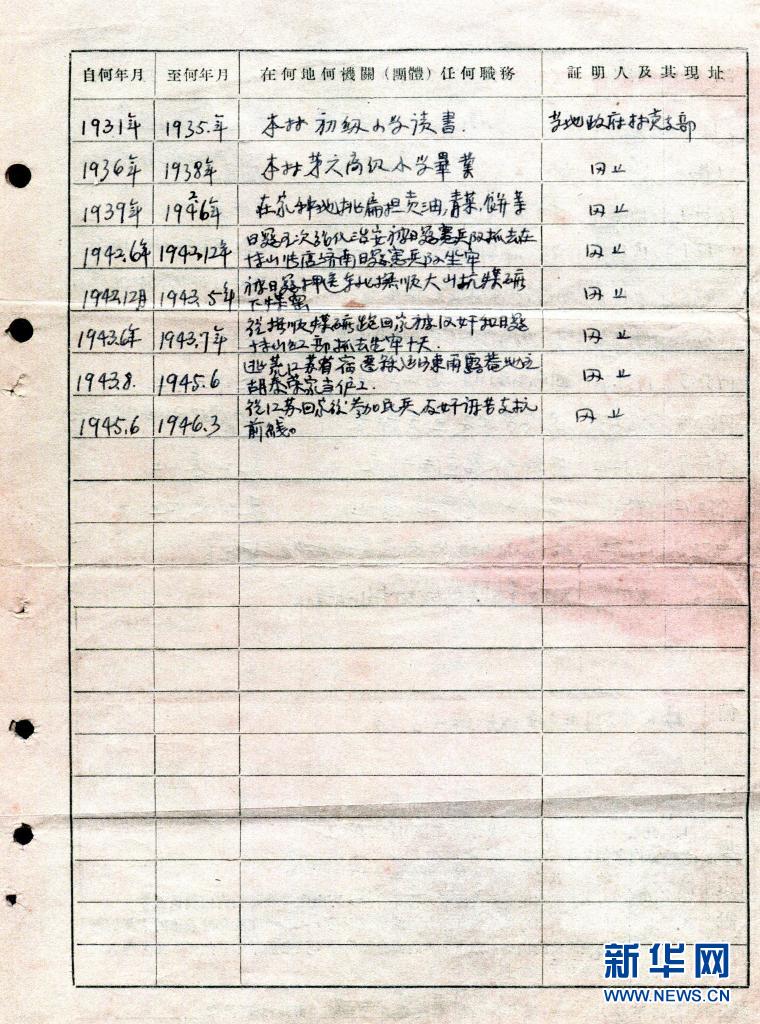 自何年月 至何年月 在何地何機關(團體)任何職務 証明人及其現址
1931年 1935.年 本村初级小学读書. 当地政府村党支部
1936年 1938年 本村第六高级小学畢業 同上
1939年 1942年 在家种地挑扁担卖油,青菜,餅等 同上
1942.6年 1942.12年 日寇五次强化治安被日寇憲兵队抓去在
博山张店济南日寇憲兵队坐牢 同上
1942.12月 1943.5年 被日寇押送东北撫顺大山抗煤礦
下煤窑 同上
1943.6年 1943.7年 從撫順煤礦跑回家被汉奸和日寇
抓去坐牢十天 同上
1943.8. 1945.6 逃荒江苏省宿迁 地主
胡泰荣家当佣工. 同上
1945.6 1946.3 從江苏回家後参加民兵 支抗
前綫。 同上
新华网
WWW.NEWS.CN